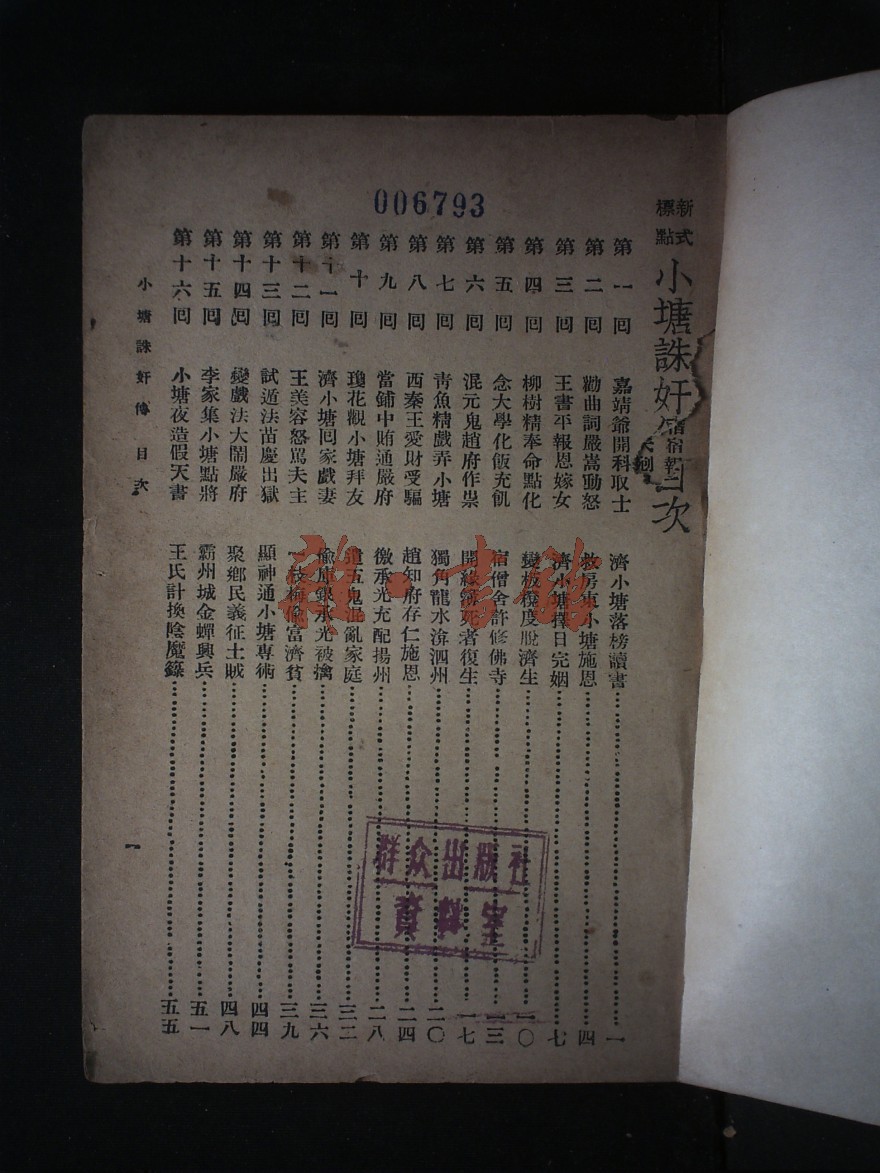 006793
新式標點 小塘誅奸 目次
第一回 嘉靖爺開科取士 濟小塘落榜讀書 一
第二回 勸曲詞嚴嵩動怒 救房東小塘施恩 四
第三回 王書平報恩嫁女 濟小塘擇日完姻 七
第四回 柳樹精奉命點化 變板櫈度脫濟生 一〇
第五回 念大學化飯充飢 宿僧舍許修佛寺 一三
第六回 混元鬼趙府作祟 開緣簿死者復生 一七
第七回 青魚精戲弄小塘 獨角龍水渰泗州 二〇
第八回 西秦王愛財受騙 趙知府存仁施恩 二四
第九回 當鋪中賄通嚴府 徼承光充配揚州 二八
第十回 瓊花觀小塘拜友 遣五鬼混亂家庭 三二
第十一回 濟小塘回家戲妻 偸庫銀承光被擒 三六
第十二回 王美容怒罵夫主 一枝梅偸富濟貧 三九
第十三回 試遁法苗慶出獄 顯神通小塘專術 四四
第十四回 變戲法大鬧嚴府 聚鄉民義征土賊 四八
第十五回 李家集小塘點將 霸州城金蟬興兵 五一
第十六回 小塘夜造假天書 王氏計換陰魔籙 五五
小塘誅奸傳 目次
一
群众出版社
資料室